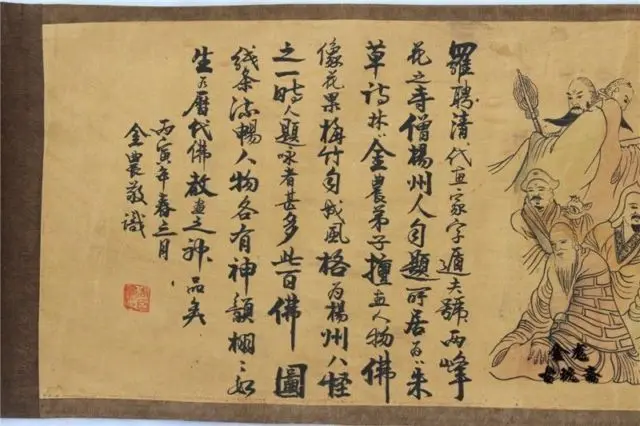 羅聘清代画家字遁夫號两峰
花之寺僧楊州人自題所居为朱
草诗林金農弟子擅画人物佛
像花果梅竹自成風格为楊州八怪
之一時人題咏者甚多此百佛圖
线条流暢人物各有神韻栩〻如
生为曆代佛教画之神品矣
丙寅年春三月
金農敬識